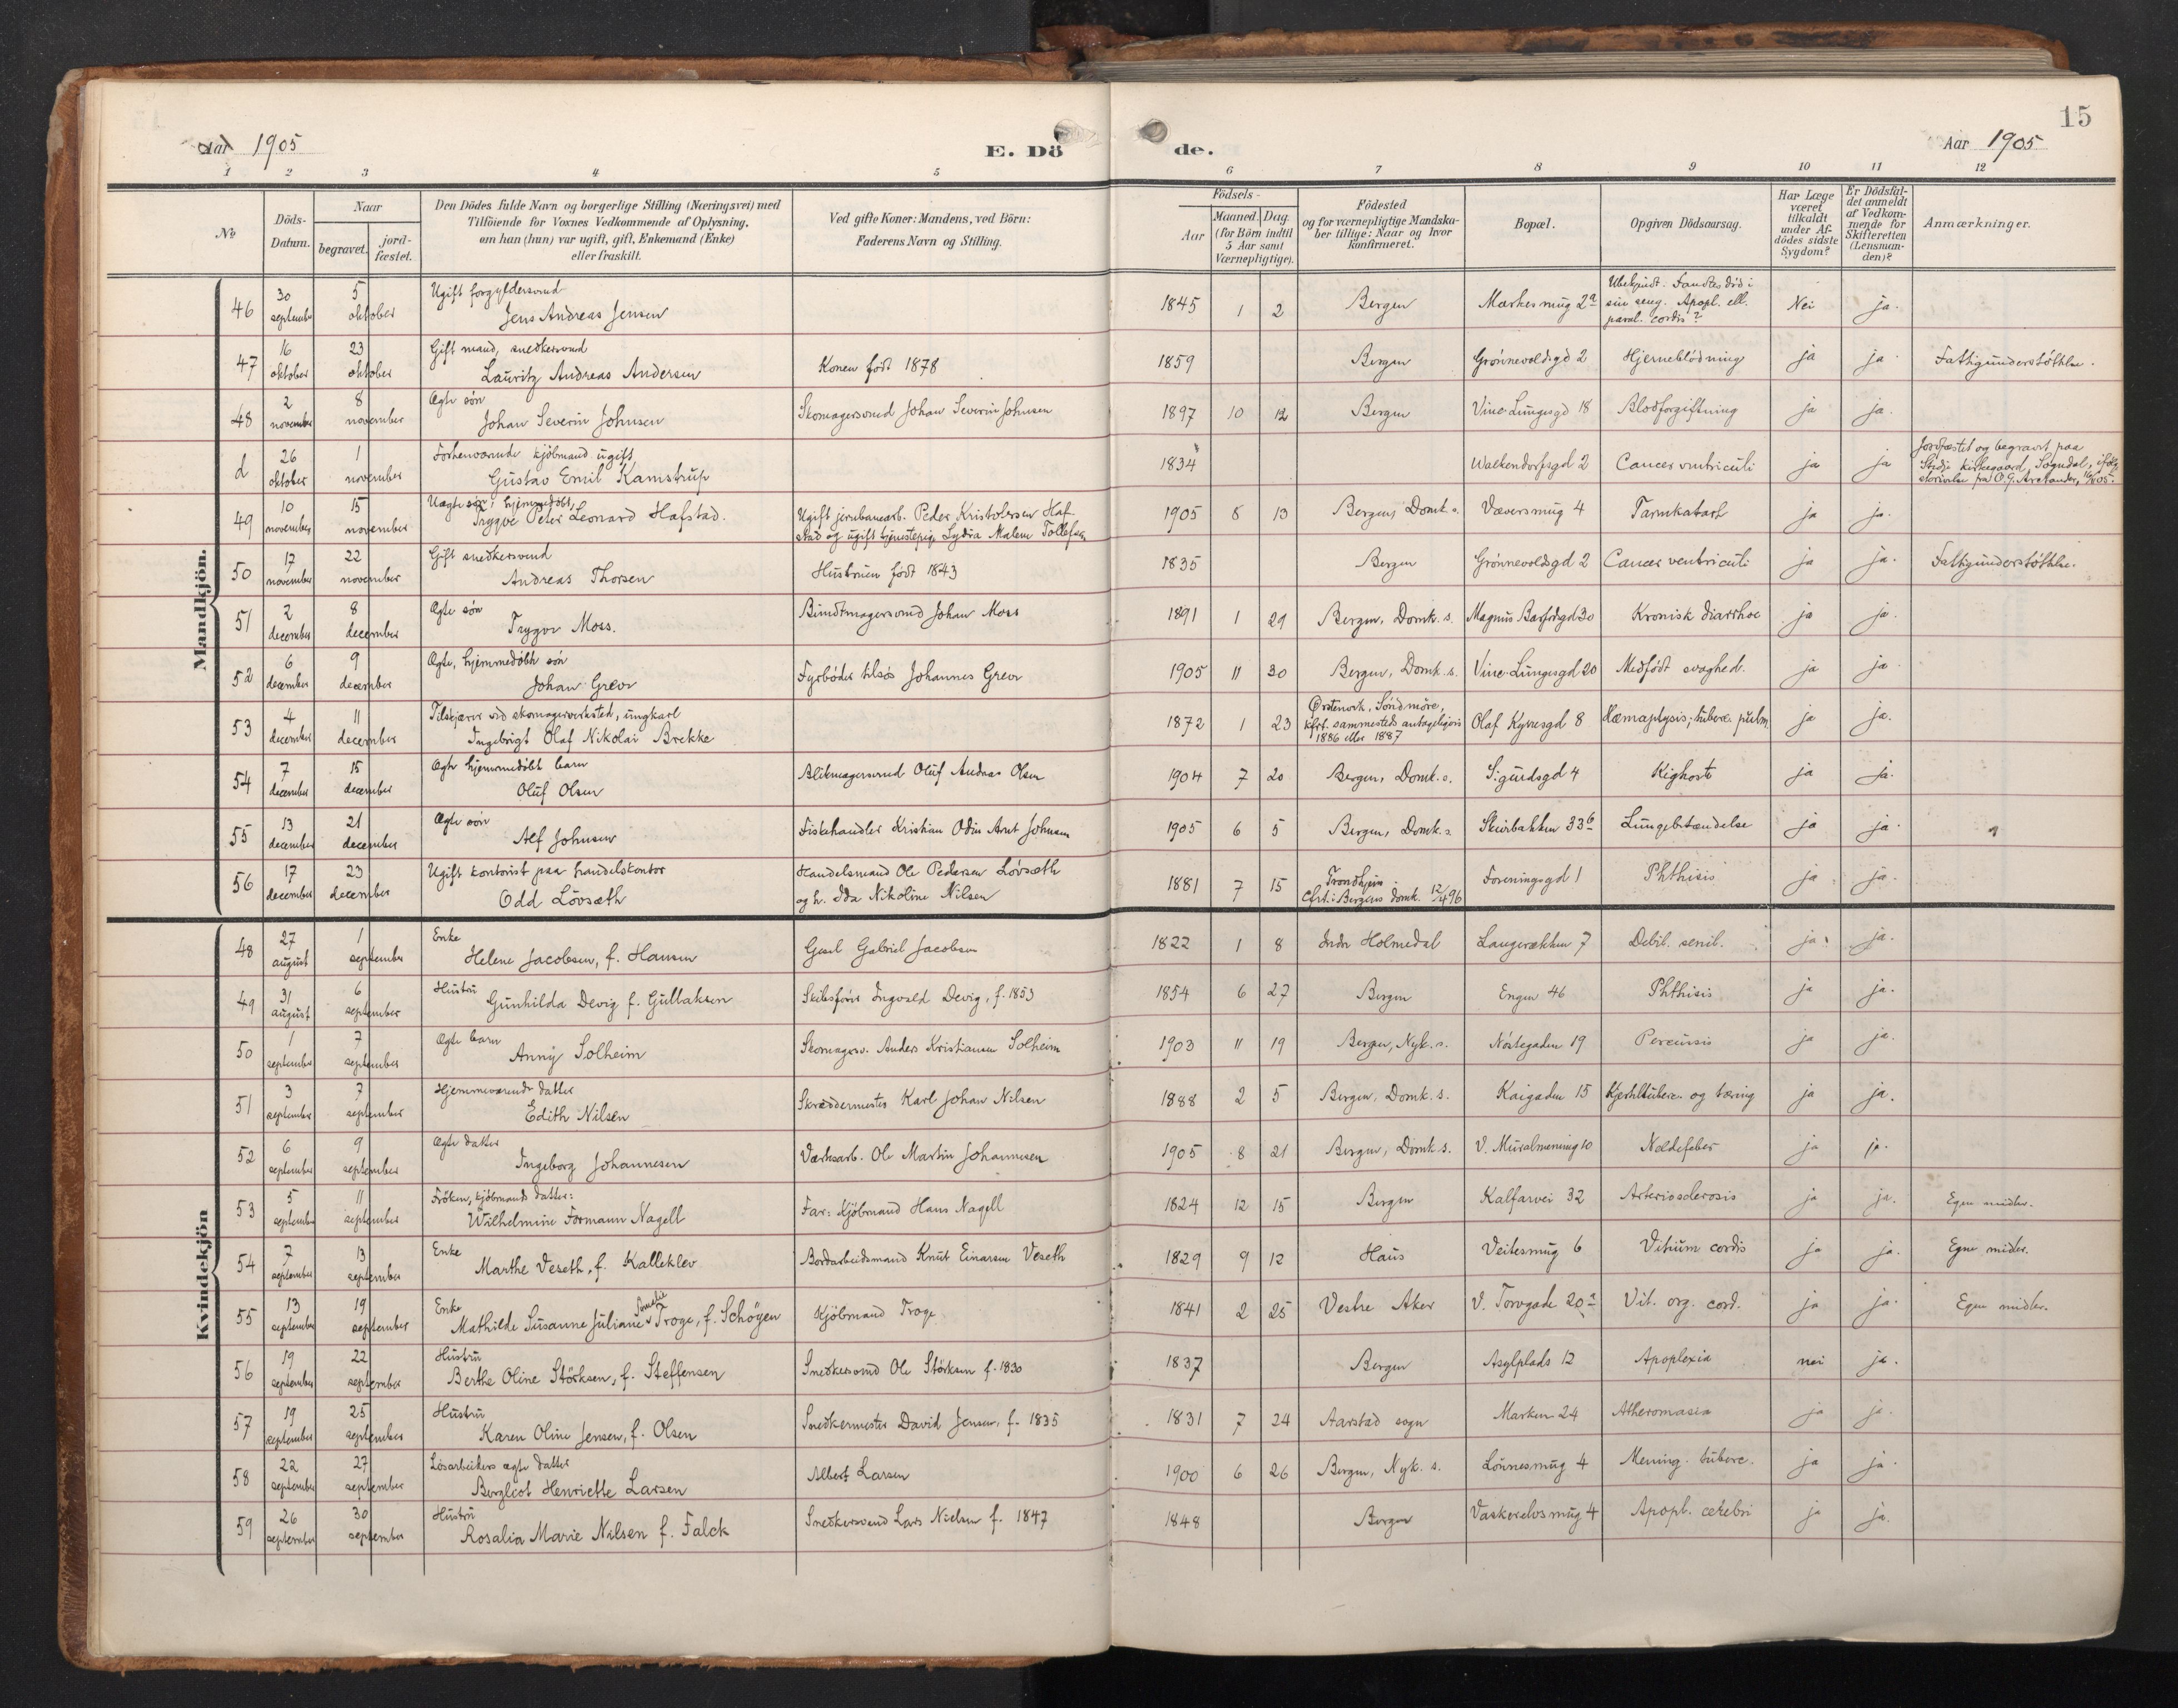 15
Aar 1905
E. Dö
de.
Aar 1905
1 2 3 4 5 6 7 8 9 10 11 12
No
Döds-
Datum.
Naar
begravet.
jord-
fæstet.
Den Dödes fulde Navn og borgerlige Stilling (Næringsvei) med
Tilföiende for Voxnes Vedkommende af Oplysning,
om han (hun) var ugift, gift, Enkemand (Enke)
eller fraskilt.
Ved gifte Koner: Mandens, ved Börn:
Faderens Navn og Stilling.
Födsels-
Aar
Maaned. Dag.
(for Börn indtil
5 Aar samt
Værnepligtige).
Födested
og for værnepligtige Mandska-
ber tillige: Naar og hvor
konfirmeret.
Bopæl.
Opgiven Dödsaarsag.
Har Læge
været
tilkaldt
under Af-
dödes sidste
Sygdom?
Er Dödsfal-
det anmeldt
af Vedkom-
mende for
Skifteretten
(Lensman-
den)?
Anmærkninger.
Mandkjön.
46 30 september 5 oktober Ugift forgyldersvend
Jens Andreas Jensen 1845 1 2 Bergen Markesmug 2a Ubekjendt. Fandtes död i
sin seng. Apopl. ell.
paral. cordis? Nei ja.
47 16 oktober 23 oktober Gift mand, snedkersvend
Lauritz Andreas Andersen Konen født 1878 1859 Bergen Grønnevoldsgd 2 Hjerneblödning ja ja Fattigunderstöttelse.
48 2 november 8 november Ægte søn
Johan Severin Johnsen Skomagersvend Johan Severin Johnsen 1897 10 12 Bergen Vinc. Lungesgd 18 Blodforgiftning ja ja.
d 26 oktober 1 november Forhenværende kjöbmand ugift
Gustav Emil Kamstrup 1834 Walkendorfsgd 2 Cancer ventriculi ja ja Jordfæstet og begravet paa
Stedje kirkegaard, Sogndal, ifølge
skrivelse fra O. G.
49 10 november 15 november Uægte søn, hjemmedøbt,
Trygve Peter Leonard Hafstad. Ugift jernbanearb. Peder Kristofersen Haf-
stad og ugift tjenestepige Lydia Malene Tollefsen 1905 8 13 Bergen, Domk. s. Væversmug 4 Tarmkatarh ja ja.
50 17 november 22 november Gift snedkersvend
Andreas Thorsen Hustruen født 1843 1835 Bergen Grønnevoldsgd 2 Cancer ventriculi ja ja. Fattigunderstöttelse.
51 2 december 8 december Ægte søn
Trygve Moss. Bundtmagersvend Johan Moss 1891 1 29 Bergen, Domk. s. Magnus Barfodsgd 30 Kronisk diarrhoe ja ja.
52 6 december 9 december Ægte, hjemmedøbt søn
Johan Greve Fyrbøder tilsøs Johannes Greve 1905 11 30 Bergen, Domk. s. Vinc. Lungesgd 20 Medfødt svaghed. ja ja
53 4 december 11 december Tilskjærer ved skomagerverksted, ungkarl
Ingebrigt Olaf Nikolai Brekke 1872 1 23 Ørstenvik, Söndmöre,
kfrt. sammesteds antageligvis
1886 eller 1887 Olaf Kyrresgd 8 Hæmaptysis; tuberc. pulm. ja ja.
54 7 december 15 december Ægte hjemmedøbt barn
Oluf Olsen Blikmagersvend Oluf Andreas Olsen 1904 7 20 Bergen, Domk. s. Sigurdsgd 4 Kighoste ja ja.
55 13 december 21 december Ægte søn
Alf Johnsen Fiskehandler Kristian Odin Arnt Johnsen 1905 6 5 Bergen, Domk. s. Skivebakken 33b Lungebetændelse ja ja.
56 17 december 23 december Ugift kontorist paa handelskontor
Odd Lövsæth Handelsmand Ole Pedersen Lövsæth
og h. Ida Nikoline Nilsen 1881 7 15 Trondhjem.
Cfrt. i Bergens domk. 12/4 96 Foreningsgd 1 Phthisis ja ja.
Kvindekjön
48 27 august 1 september Enke
Helene Jacobsen, f. Hansen Gabriel Jacobsen 1822 1 8 Indre Holmedal Langerækken 7 Debil. senil. ja ja.
49 31 august 6 september Hustru
Gunhilda Devig f. Gullaksen Skibsfører Ingvald Devig, f. 1853 1854 6 27 Bergen Engen 46 Phthisis ja ja.
50 1 september 7 september Ægte barn
Anny Solheim Skomagersv. Anders Kristiansen Solheim 1903 11 19 Bergen, Nyk. s. Nöstegaden 19 Percussis ja ja.
51 3 september 7 september Hjemmeværende datter
Edith Nilsen Skræddermester Karl Johan Nilsen 1888 2 5 Bergen, Domk. s. Kaigaden 15 Kjerteltuberc. og tæring ja ja.
52 6 september 9 september Ægte datter
Ingeborg Johannesen Værksarb. Ole Martin Johannesen 1905 8 21 Bergen, Domk. s. V. Muralmening 10 Neldefeber ja ja.
53 5 september 11 september Fröken, kjöbmands datter:
Wilhelmine Formann Nagell Far: Kjöbmand Hans Nagell 1824 12 15 Bergen Kalfarvei 32 Arteriosclerosis ja ja. Egne midler.
54 7 september 13 september Enke
Marthe Veseth, f. Kalleklev Bordarbeidsmand Knut Einarsen Veseth 1829 9 12 Haus Veitesmug 6 Vitium cordis ja ja. Egne midler.
55 13 september 19 september Enke
Mathilde Susanne Juliane Amalie Troge, f. Schöyen Kjöbmand Troge 1841 2 25 Vestre Aker V. Torvgade 20a Vit. org. cord. ja ja. Egne midler.
56 19 september 22 september Hustru
Berthe Oline Störksen, f. Steffensen Snedkersvend Ole Störksen f. 1830 1837 Bergen Asylplads 12 Apoplexia nei ja.
57 19 september 25 september Hustru
Karen Oline Jensen, f. Olsen Snedkermester David Jensen, f. 1835 1831 7 24 Aarstad sogn Marken 24 Atheromasia ja ja.
58 22 september 27 september Løsarbeiders ægte datter
Bergliot Henriette Larsen Albert Larsen 1900 6 26 Bergen, Nyk. s. Lönnesmug 4 Mening. tuberc. ja ja.
59 26 september 30 september Hustru
Rosalia Marie Nilsen f. Falck Snedkersvend Lars Nielsen f. 1847 1848 Bergen Vaskerelvsmug 4 Apopl. cerebri ja ja.